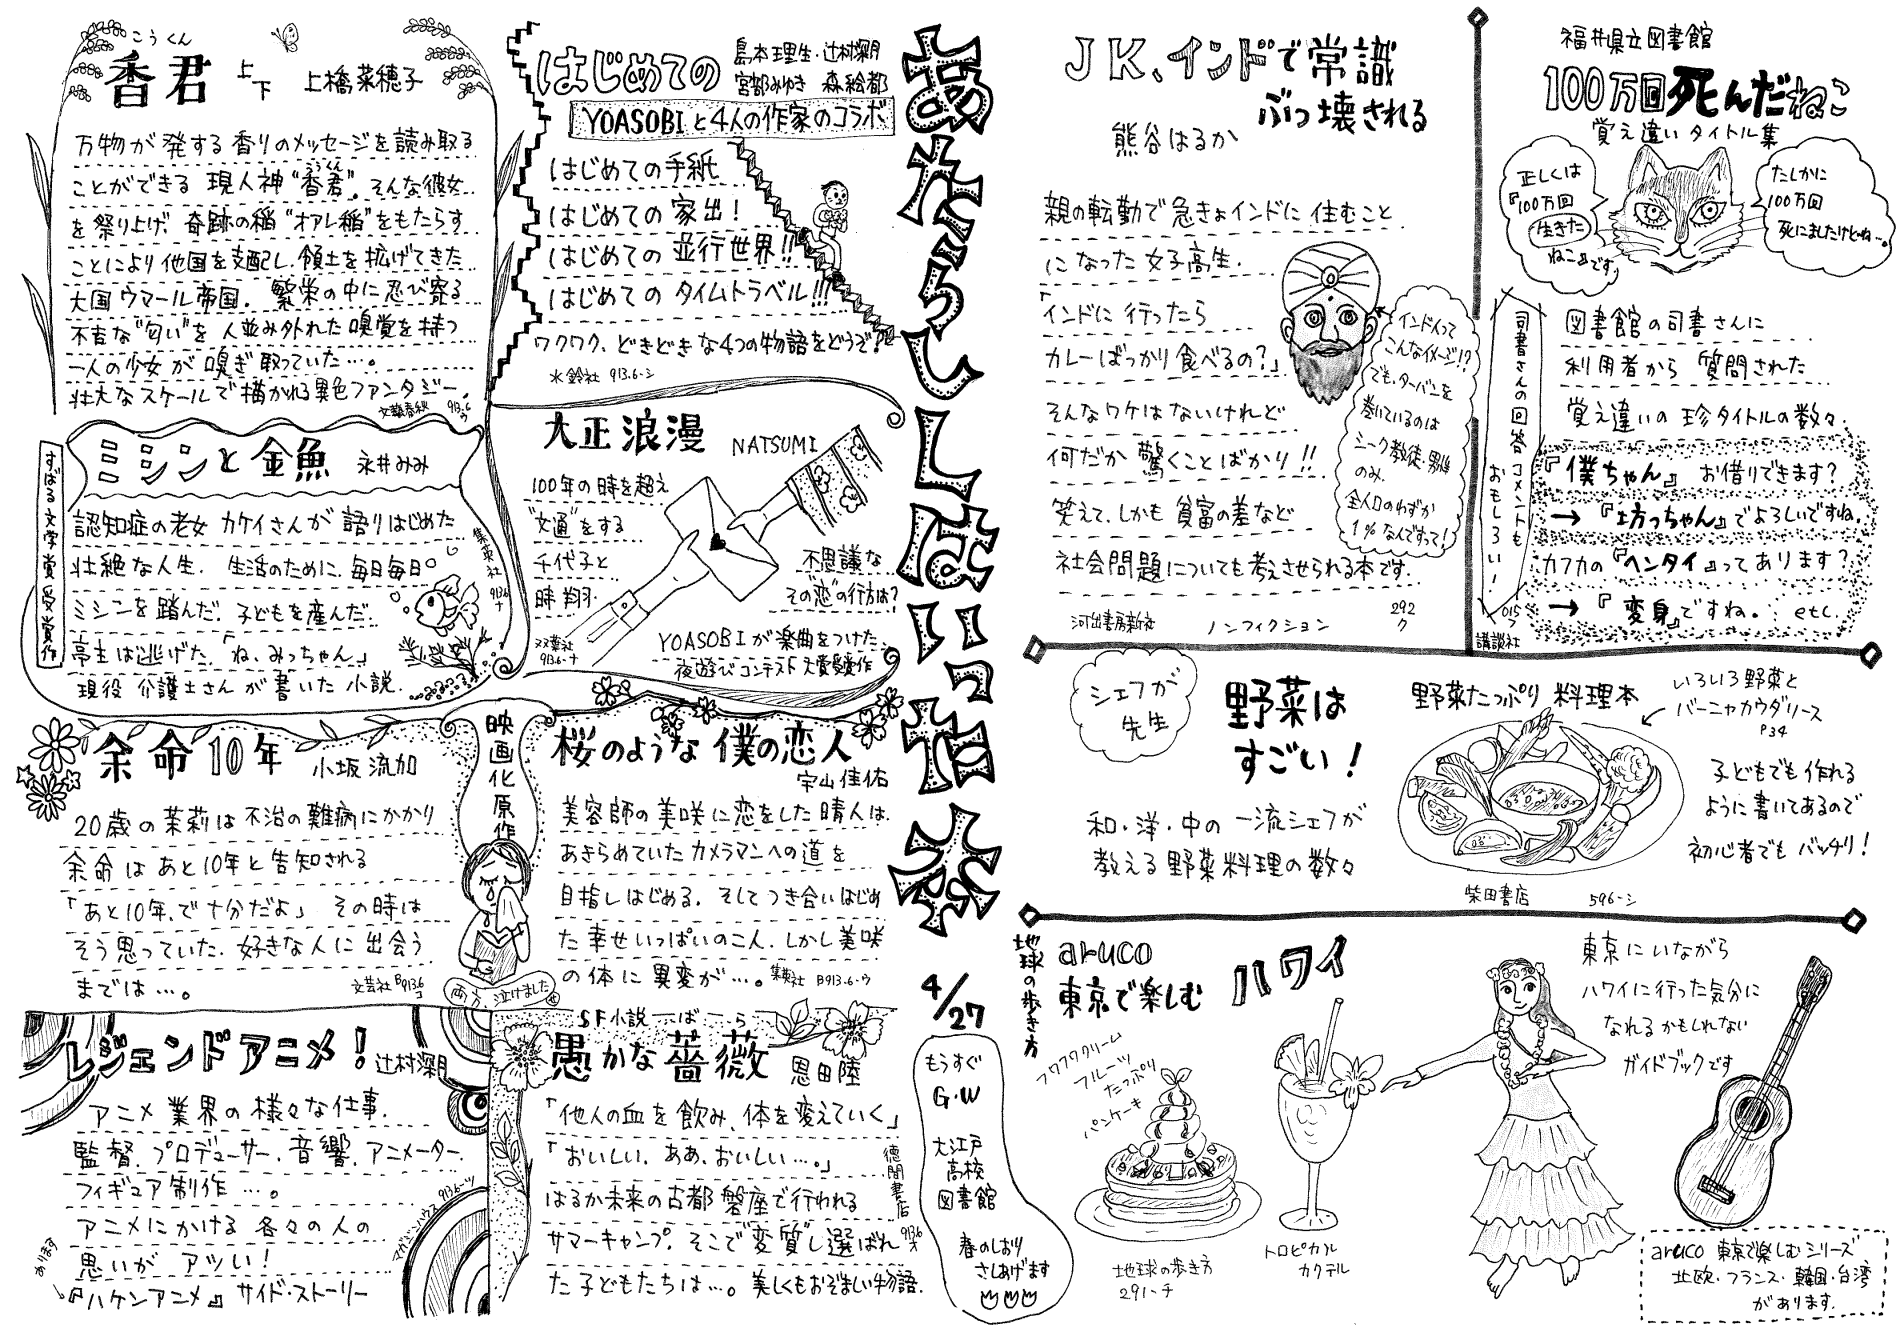 あたらしくはいった本
4/27
もうすぐ
G・W
大江戸
高校
図書館
春のしおり
さしあげます
こうくん
香君 上下 上橋菜穂子
万物が発する香りのメッセージを読み取る
ことができる 現人神“香君”。そんな彼女
こうくん
を祭り上げ、奇跡の稲“オアレ稲”をもたらす
ことにより他国を支配し、領土を拡げてきた
大国ウマール帝国。繁栄の中に忍び寄る
不吉な“匂い”を人並み外れた嗅覚を持つ
一人の少女が嗅ぎ取っていた…。
壮大なスケールで描かれる異色ファンタジー。
文藝春秋 913.6 ウ
はじめての
島本理生・辻村深月
宮部みゆき 森絵都
YOASOBIと4人の作家のコラボ
はじめての手紙
はじめての家出！
はじめての並行世界!!
はじめてのタイムトラベル!!!
ワクワク、どきどきな4つの物語をどうぞ！
水鈴社 913.6-シ
ミシンと金魚 永井みみ
すばる文学賞受賞作
認知症の老女 カケイさんが語りはじめた
壮絶な人生。生活のために、毎日毎日
ミシンを踏んだ。子どもを産んだ。
亭主は逃げた。「ね、みっちゃん」
現役介護士さんが書いた小説。
集英社 913.6 ナ
大正浪漫 NATSUMI
100年の時を超え
“文通”をする
千代子と
時翔。
不思議な
その恋の行方は？
YOASOBIが楽曲をつけた、
夜遊びコンテスト大賞受賞作
双葉社
913.6-ナ
映画化原作
余命10年 小坂流加
20歳の茉莉は不治の難病にかかり
余命はあと10年と告知される
「あと10年、で十分だよ」その時は
そう思っていた。好きな人に出会う
までは…。
文芸社 B913.6 コ
両方、泣けました
桜のような僕の恋人
宇山佳佑
美容師の美咲に恋をした晴人は、
あきらめていたカメラマンへの道を
目指しはじめる。そしてつき合いはじめ
た幸せいっぱいの二人。しかし美咲
の体に異変が…。
集英社 B913.6-ウ
レジェンドアニメ！ 辻村深月
アニメ業界の様々な仕事。
監督、プロデューサー、音響、アニメーター、
フィギュア制作…。
アニメにかける各々の人の
思いがアツい！
『ハケンアニメ』サイド・ストーリー
あります
マガジンハウス 913.6-ツ
SF小説 ばら
愚かな薔薇 恩田陸
「他人の血を飲み、体を変えていく」
「おいしい。ああ、おいしい…。」
はるか未来の古都 磐座で行われる
サマーキャンプ。そこで変質し選ばれ
た子どもたちは…。美しくもおぞましい物語。
徳間書店
913.6 オ
JK、インドで常識
ぶっ壊される
熊谷はるか
親の転勤で急きょインドに住むこと
になった女子高生。
「インドに行ったら
カレーばっかり食べるの？」
そんなワケはないけれど
何だか驚くことばかり!!
笑えて、しかも貧富の差など
社会問題についても考えさせられる本です。
インド人って
こんなイメージ!?
でも、ターバンを
巻いているのは
シーク教徒・男性
のみ。
全人口のわずか
1%なんですって！
河出書房新社 ノンフィクション 292 ク
福井県立図書館
100万回死んだねこ
覚え違いタイトル集
正しくは
『100万回
生きた
ねこ』です。
たしかに
100万回
死にましたけどね…。
図書館の司書さんに
利用者から質問された
覚え違いの珍タイトルの数々
『僕ちゃん』お借りできます？
→『坊っちゃん』でよろしいですね。
カフカの『ヘンタイ』ってあります？
→『変身』ですね。 etc.
司書さんの回答コメントも
おもしろい！
015 フ
講談社
シェフが
先生
野菜は
すごい！
野菜たっぷり料理本
いろいろ野菜と
バーニャカウダソース
P34
和・洋・中の一流シェフが
教える野菜料理の数々
子どもでも作れる
ように書いてあるので
初心者でもバッチリ！
柴田書店 596-シ
地球の歩き方
aruco
東京で楽しむ ハワイ
フワフワクリーム
フルーツ
たっぷり
パンケーキ
地球の歩き方
291-チ
トロピカル
カクテル
東京にいながら
ハワイに行った気分に
なれるかもしれない
ガイドブックです
aruco 東京で楽しむシリーズ
北欧・フランス・韓国・台湾
があります。